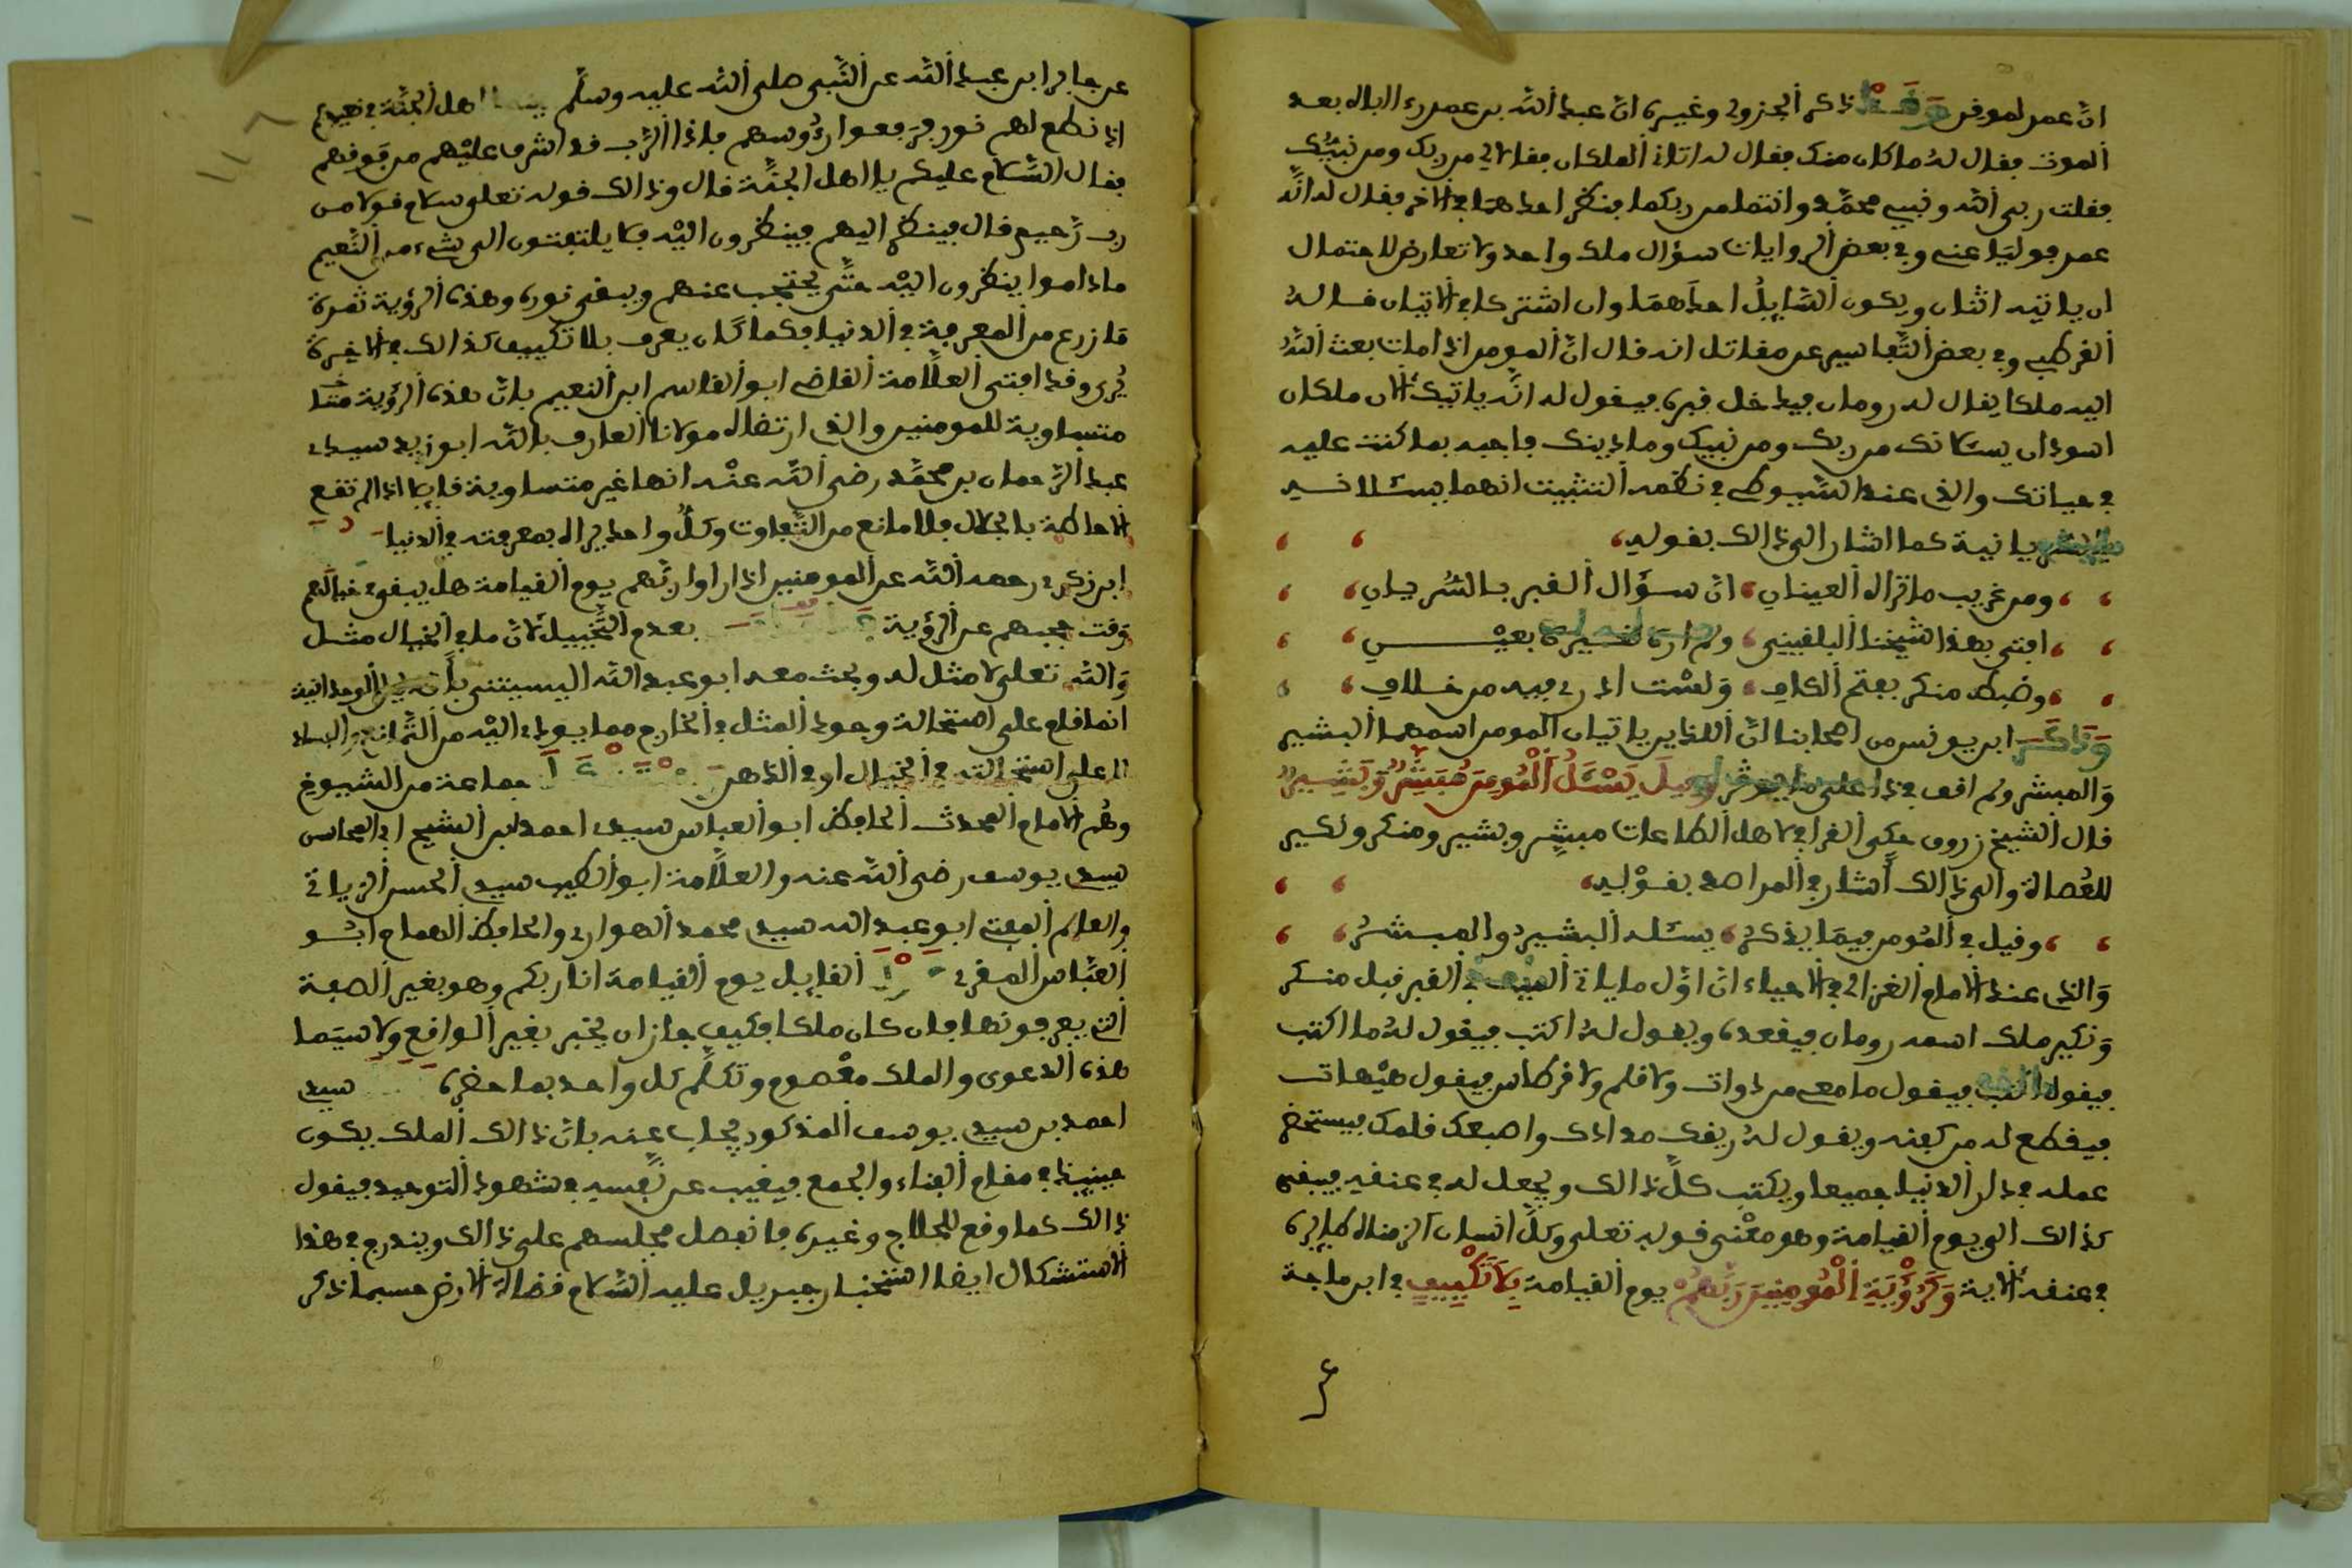 انّ عمر لموفق وَقَدْ ذكر الجزولي وغيره انّ عبد الله بن عمر رءا اباه بعد
الموت فقال له ما كان منك فقال له اتاني الملكان فقالا لي من ربك ومن نبيّك
فقلت ربي الله ونبيي محمّد وانتما من ربكما فنظر احدهما في الاخر فقال له انّه
عمر فوليا عني وفي بعض الروايات سؤال ملك واحد ولا تعارض لاحتمال
ان ياتيه اثنان ويكون السّايلُ احدَهمَا وان اشتركا في الاتيان قاله
القرطبي وفي بعض التّفاسير عن مقاتل انه قال انّ المومن اذا مات بعث اللهُ
اليه ملكا يقال له رومان فيدخل قبره فيقول له انّه ياتيك الان ملكان
اسودان يسئلانك من ربك ومن نبيك وما دينك فاجبه بما كنت عليه
في حياتك والذي عند السّيوطي في نظمه التثبيت انهما يسئلانه
بالسّريانية كما اشار الى ذالك بقوله
ومن غريب ما ترى العينان انّ سؤال القبر بالسّرياني
افتى بهذا شيخنا البلقيني ولم اره لغيره بعيْني
وضبط منكر بفتح الكاف وَلسْت ادري فيه من خلاف
وَذَكَرَ ابن يونس من اصحابنا انّ اللذين ياتيان المومن اسمهما البشير
وَالمبشر ولم اقف في ذا على وقِيلَ يَسْئَلُ الْمُومِنَ مُبَشِّرٌ وَبَشِيرٌ
قال الشيخ زروق حكى القرافي لاهل الطاعات مبشر وبشير ومنكر ونكير
للعُصاة والى ذالك أشار في المراصد بقوْله
وقيل في المُومن فيمَا يذكرُ يسئله البشيرُ والمبشرُ
وَالذي عند الامام الغزالي في الاحياء انّ اوّل ما ياتي الميت في القبر قبل منكر
وَنكير ملك اسمه رومان فيقعده ويقول لهُ اكتب فيقول لهُ ما اكتب
فيقول فيقول ما معي من دوات ولا قلم ولا قرطاس فيقول هيْهات
فيقطع له من كفنه ويقول لهُ ريقك مدادك واصبعك قلمك فيستخرج
عمله في دار الدنيا جميعا ويكتب كلّ ذالك ويجعل له في عنقه فيبقى
كذالك الى يوم القيامة وهو معْنى قوله تعلى وكلّ انسان الزمناه طايره
في عنقه الاية وَكَرُؤْيَةِ الْمُومِنِينَ رَبَّهُمْ يوم القيامة بِلاَ تَكْيِيفٍ في ابن ماجة
عن جابر ابن عبد الله عن النّبي صلى الله عليه وسلّم بينما اهل الجنّة في نعيم
اذ سطع لهم نور فرفعوا رءُوسهم فاذا الرّب قد اشرف عليْهم من فوقهم
فقال السّلام عليكم يا اهل الجنّة قال وذالك قوله تعلى سلام قولا من
رب رّحيم قال فينظر اليهم فينظرون اليْه فلا يلتفتون الى شيء من النّعيم
ماداموا ينظرون اليْه حتّى يحتجب عنهم ويبقى نوره وهذه الرؤية ثمرة
ما زرع من المعرفة في الدنيا فكما كان يعرف بلا تكييف كذالك في الاخرة
يُرى وقد افتى العلّامة القاضي ابو القاسم ابن النعيم بانّ هذه الرؤية
متساوية للمومنين والذي ارتضاه مولانا العارف بالله ابو زيد سيدي
عبد الرّحمان بن محمّد رضي الله عنْه انها غير متساوية قايلا اذا لم تقع
الاحاطة بالجلال فلا مانع من التّفاوت وكلُّ واحد يراه بمعرفته في الدنيا
ابن زكري رحمه الله عن المومنين اذا راوا ربّهم يوم القيامة هل يبقى في خيالهم
وَقت حجبهم عن الرؤية بعدم التّخييل لانّ ما في الخيال مثل
وَالله تعلى لا مثل له وبحث معه ابو عبد الله اليسيتني الوحدانية
انما قام على استحالة وجود المثل في الخارج مما يودي اليْه من التّمانع والفساد
لا على استحالته في الخيال او في الذهن جماعة من الشيوخ
وهُم الامام المحدث الحافظ ابو العباس سيدي احمد ابن الشيخ ابي المحاسن
سيدي يوسف رضي الله عنه والعلّامة ابو الطيب سيدي الحسن الزياتي
والعالم المفتي ابو عبد الله سيدي محمد الهواري والحافظ الهمام ابو
العبّاس المقري القايل يوم القيامة انا ربكم وهو بغير الصفة
التي يعرفونها فان كان ملكا فكيف جاز ان يخبر بغير الواقع ولا سيّما
هذه الدعوى والملك معْصوم وتكلّم كل واحد بما حضره سيدي
احمد بن سيدي يوسف المذكور يجاب عنه بانّ ذالك الملك يكون
حينيذ في مقام الفناء والجمع فيغيب عن نفسه في شهود التوحيد فيقول
ذالك كما وقع للحلاج وغيره فانفصل مجلسهم على ذالك ويندرج في هذا
الاستشكال ايضا استخبار جبريل عليه السّلام قضاة الارض حسبما ذكر